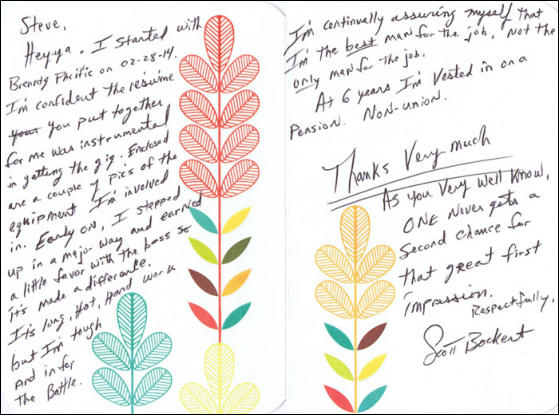 Steve,
Heyya. I started with
Brenntg Pacific on 02-28-14.
I'm confident the resume
you put together
for me was instrumental
in getting the gig. Enclosed
are a couple of pics of the
equipment I'm involved
in. Early on, I stepped
up in a major way and earned
a little favor with the boss so
it's made a difference.
It's long, Hot, Hard work
but I'm tough
And in for
the Battle.
I'm continually assuring myself that
I'm the best man for the job, not the
only man for the job.
At 6 years I'm Vested in on a
Pension. Non-union.
Thanks Very much
As you Very well Know,
ONE Never gets a
Second Chance for
that great first
impression.
Respectfully,
Scott Bockert